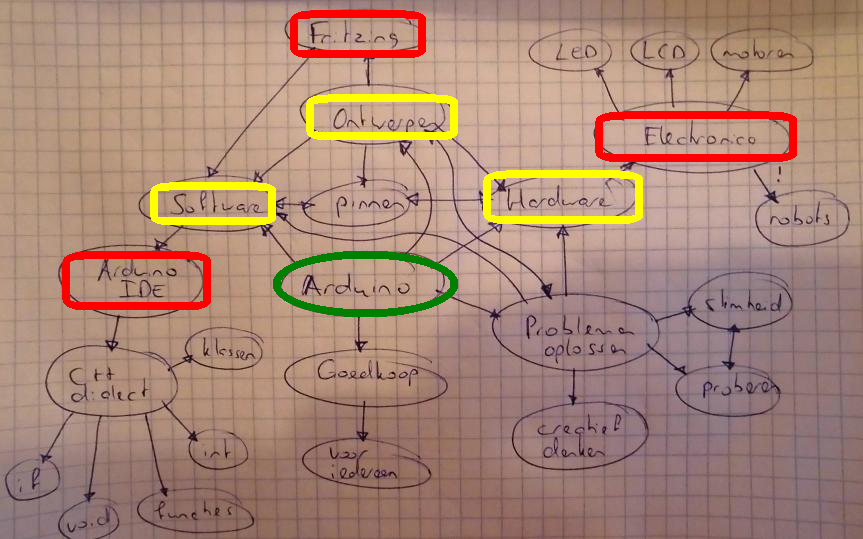 Fritzing
LED
LCD
motoren
Ontwerpen
Electronica
!
Software
pinnen
Hardware
robots
Arduino
IDE
Arduino
Problemen
oplossen
slimheid
klassen
C++
dialect
Goedkoop
proberen
int
voor
iedereen
creatief
denken
if
void
functies